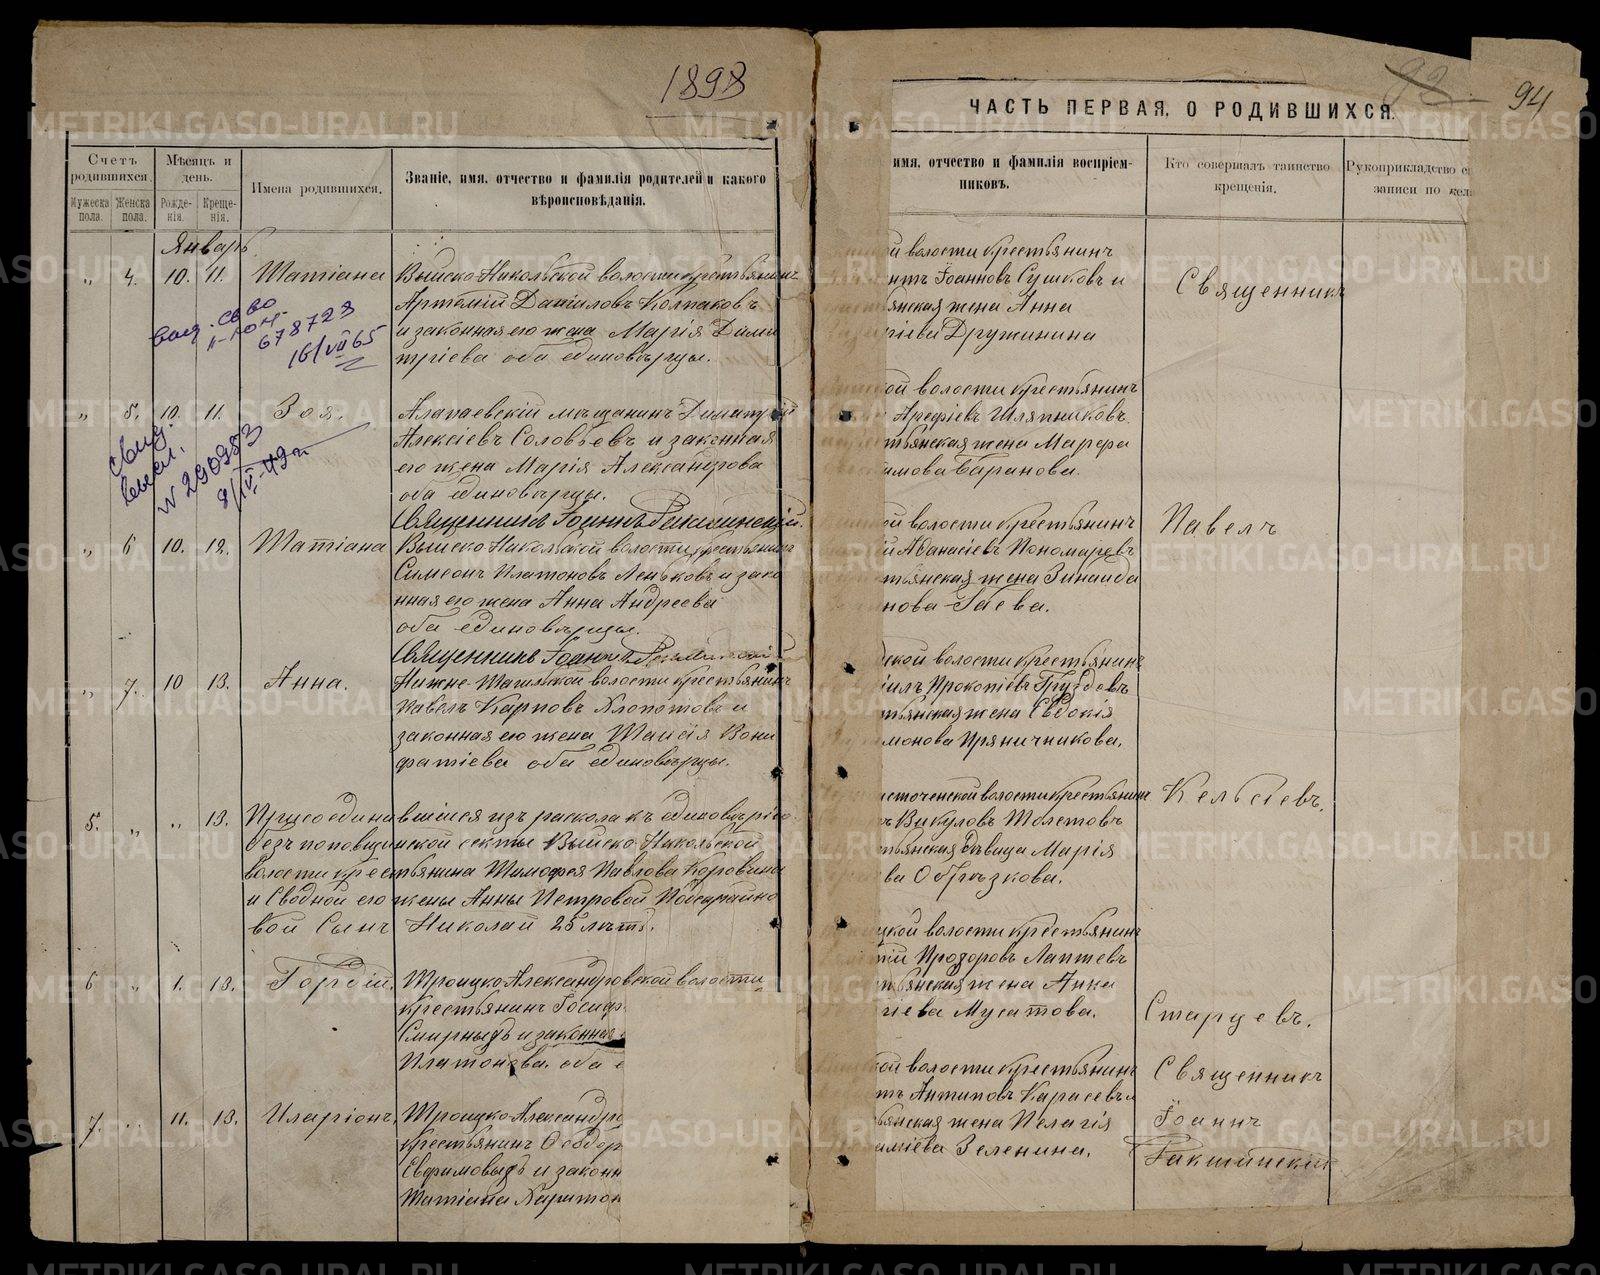 1898
92
94
ЧАСТЬ ПЕРВАЯ, О РОДИВШИХСЯ.
Счетъ родившихся.
Мужеска пола.
Женска пола.
Мѣсяцъ и день.
Рожде-
нія.
Креще-
нія.
Имена родившихся.
Званіе, имя, отчество и фамилія родителей и какого
вѣроисповѣданія.
имя, отчество и фамилія воспріем-
никовъ.
Кто совершалъ таинство
крещенія.
Рукоприкладство
записи по
Январь
„ 4. 10. 11. Татіана
Выйско-Никольской волости крестьянинъ
Артемій Даниловъ Колпаковъ
и законная его жена Марія Дими
тріева оба единовѣрцы.
678723
16/VII 65
волости крестьянинъ
Іоанновъ Сушковъ и
жена Анна
Дружинина
Священникъ
„ 5. 10. 11. Зоя.
Алапаевскій мѣщанинъ Димитрій
Алексіевъ Соловьевъ и законная
его жена Марія Александрова
оба единовѣрцы.
Священникъ Іоаннъ
N 290953
9/IV-49 г.
волости крестьянинъ
Арефіевъ Шляпниковъ
жена Марфа
Баранова.
„ 6 10. 12. Татіана
Выйско-Никольской волости крестьянинъ
Симеонъ Платоновъ Леньковъ и зако
нная его жена Анна Андреева
оба единовѣрцы.
Священникъ Іоаннъ
волости крестьянинъ
Аѳанасіевъ Пономаревъ
жена Зинаида
нова Гаева.
Павелъ
„ 7. 10 13. Анна.
Нижне-Тагильской волости крестьянинъ
Павелъ Карповъ Хлопотовъ и
законная его жена Таисія Вони
фатіева оба единовѣрцы.
волости крестьянинъ
Прокопіевъ Груздевъ
жена Евдокія
Пряничникова.
5. „ „ 13. Присоединившійся изъ раскола къ единовѣрію
безъ поповщинской секты Выйско-Никольской
волости крестьянина Тимофея Павлова Коровина
и Сводной его жены Анны Петровой
вой Сынъ Николай 25 лѣтъ.
волости крестьянинъ
Викуловъ Толстовъ
дѣвица Марія
ва Обрѣзкова.
Кельсіевъ.
6 „ 1. 13. Гордій.
Троицко-Александровской волости
крестьянинъ Іосиф
Смирныхъ и законная
Платонова. оба е
волости крестьянинъ
Прозоровъ Лаптевъ
жена Анна
гіева Мусатова.
Старцевъ.
7. „ 11. 13. Иларіонъ.
Троицко-Александро
крестьянинъ Ѳеодор
Евфимовыхъ и законн
Татіана Харитон
волости крестьянинъ
Антиповъ Карасевъ и
жена Пелагія
Зеленина.
Священникъ
Іоаннъ
METRIKI.GASO-URAL.RU